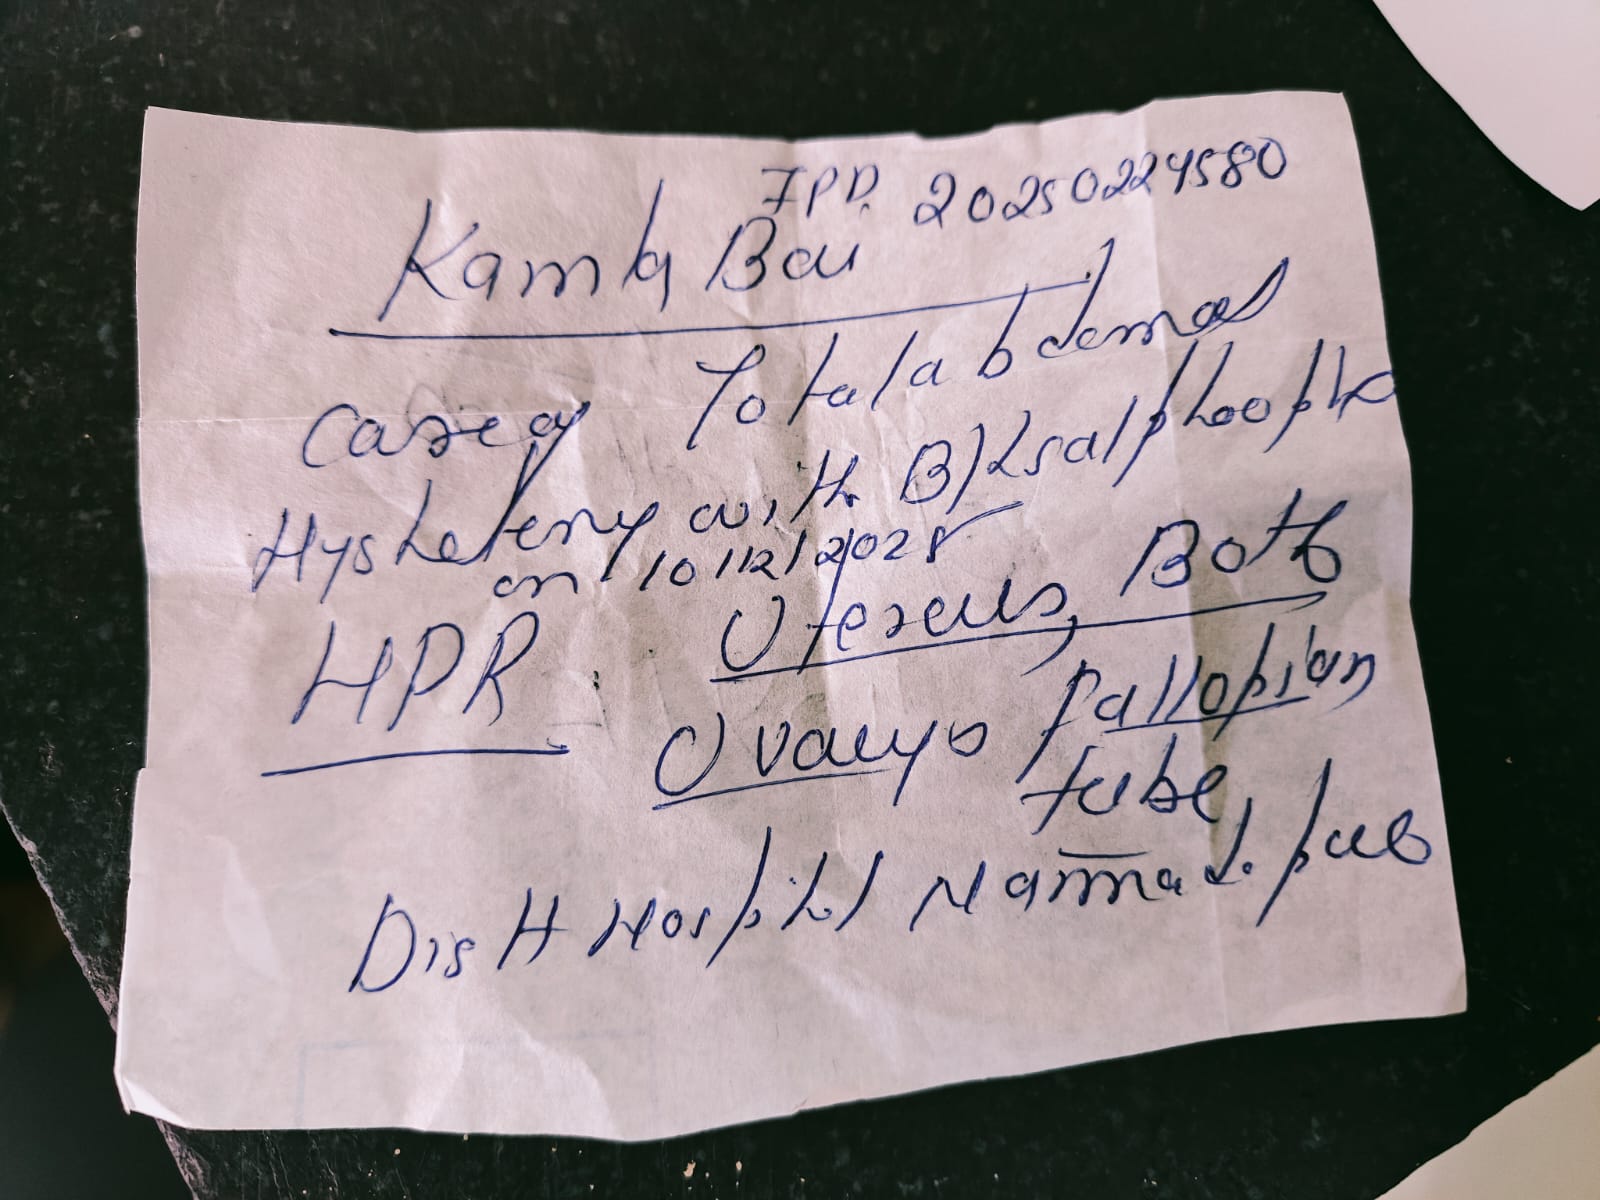 IPD. 20250224580
Kamla Bai
Case of Total abdomal
Hysteterny with B/L salphoopho
on 10/12/2025
HPR Uterus, Both
Ovarys fallopian
tube,
Distt Hospitl Narmadapur